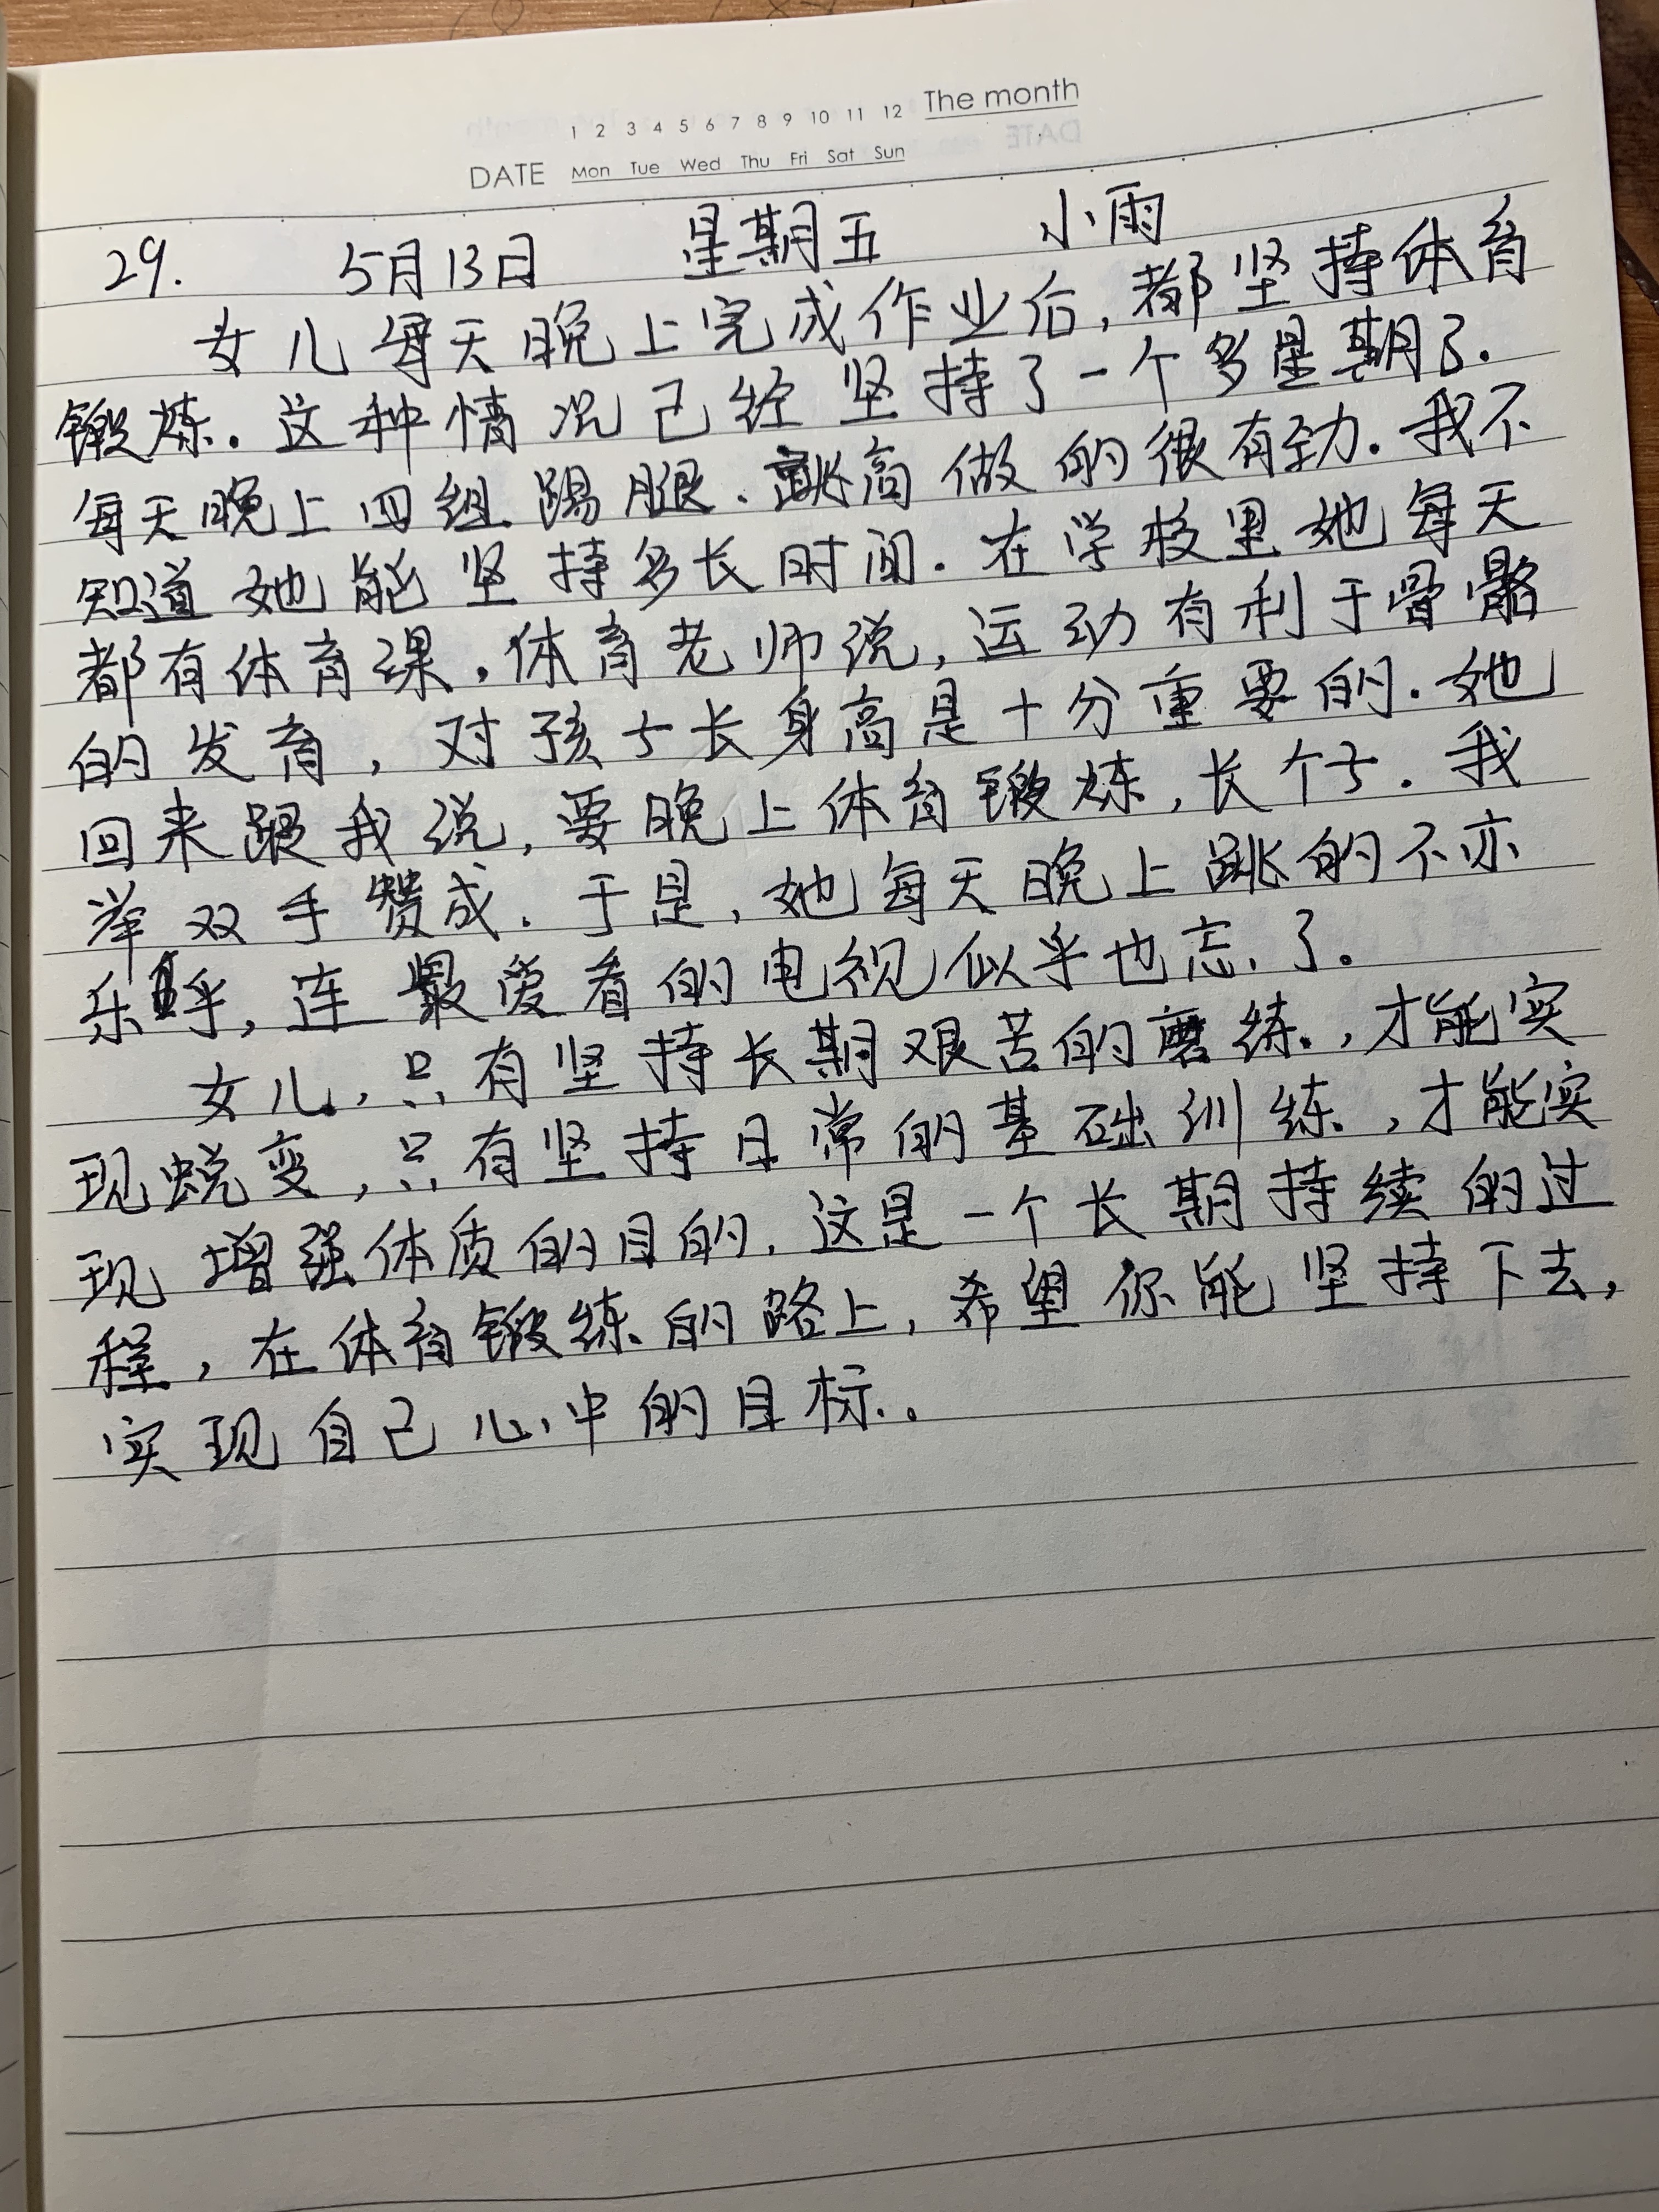 The month
1 2 3 4 5 6 7 8 9 10 11 12
DATE Mon Tue Wed Thu Fri Sat Sun
29. 5月13日 星期五 小雨
女儿每天晚上完成作业后,都坚持体育
锻炼.这种情况已经坚持了一个多星期了.
每天晚上四组踢腿、跳高做的很有劲.我不
知道她能坚持多长时间.在学校里她每天
都有体育课.体育老师说,运动有利于骨骼
的发育,对孩子长身高是十分重要的.她
回来跟我说,要晚上体育锻炼,长个子.我
举双手赞成.于是,她每天晚上跳的不亦
乐乎,连最爱看的电视似乎也忘了.
女儿,只有坚持长期艰苦的磨练,才能实
现蜕变,只有坚持日常的基础训练,才能实
现增强体质的目的.这是一个长期持续的过
程,在体育锻练的路上,希望你能坚持下去,
实现自己心中的目标.